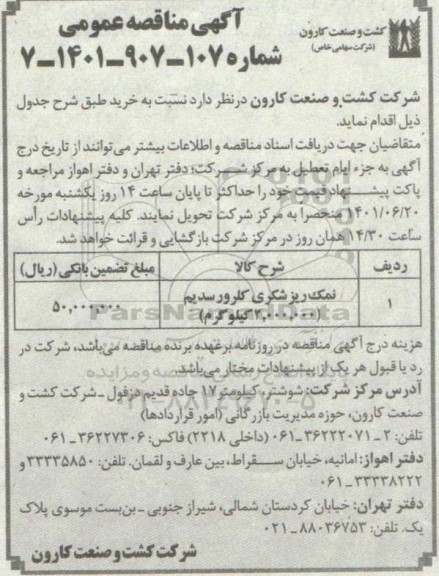 آگهی مناقصه عمومی
شماره ۱۰۷-۹۰۷-۱۴۰۱-۷
کشت و صنعت کارون
(شرکت سهامی خاص)
شرکت کشت و صنعت کارون درنظر دارد نسبت به خرید طبق شرح جدول
ذیل اقدام نماید.
متقاضیان جهت دریافت اسناد مناقصه و اطلاعات بیشتر می‌توانند از تاریخ درج
آگهی به جزء ایام تعطیل به مرکز شرکت؛ دفتر تهران و دفتر اهواز مراجعه و
پاکت پیشنهاد قیمت خود را حداکثر تا پایان ساعت ۱۴ روز یکشنبه مورخه
۱۴۰۱/۰۶/۲۰ منحصرا به مرکز شرکت تحویل نمایند. کلیه پیشنهادات رأس
ساعت ۱۴/۳۰ همان روز در مرکز شرکت بازگشایی و قرائت خواهد شد.
ردیف شرح کالا مبلغ تضمین بانکی (ریال)
۱ نمک ریز شکری کلرور سدیم ۵۰,۰۰۰,۰۰۰
(۲,۰۰۰,۰۰۰ کیلوگرم)
هزینه درج آگهی مناقصه در روزنامه برعهده برنده مناقصه می‌باشد، شرکت در
رد یا قبول هر یک از پیشنهادات مختار می‌باشد.
آدرس مرکز شرکت: شوشتر، کیلومتر ۱۷ جاده قدیم دزفول - شرکت کشت و
صنعت کارون، حوزه مدیریت بازرگانی (امور قراردادها)
تلفن: ۲ - ۳۶۲۲۲۰۷۱-۰۶۱ (داخلی ۲۲۱۸) فاکس: ۳۶۲۲۷۳۰۶-۰۶۱
دفتر اهواز: امانیه، خیابان سقراط، بین عارف و لقمان. تلفن: ۳۳۳۳۵۸۵۰ و
۳۳۳۳۸۲۲۲-۰۶۱
دفتر تهران: خیابان کردستان شمالی، شیراز جنوبی - بن‌بست موسوی پلاک
یک. تلفن: ۸۸۰۳۶۷۵۳-۰۲۱
شرکت کشت و صنعت کارون
ParsNamadData